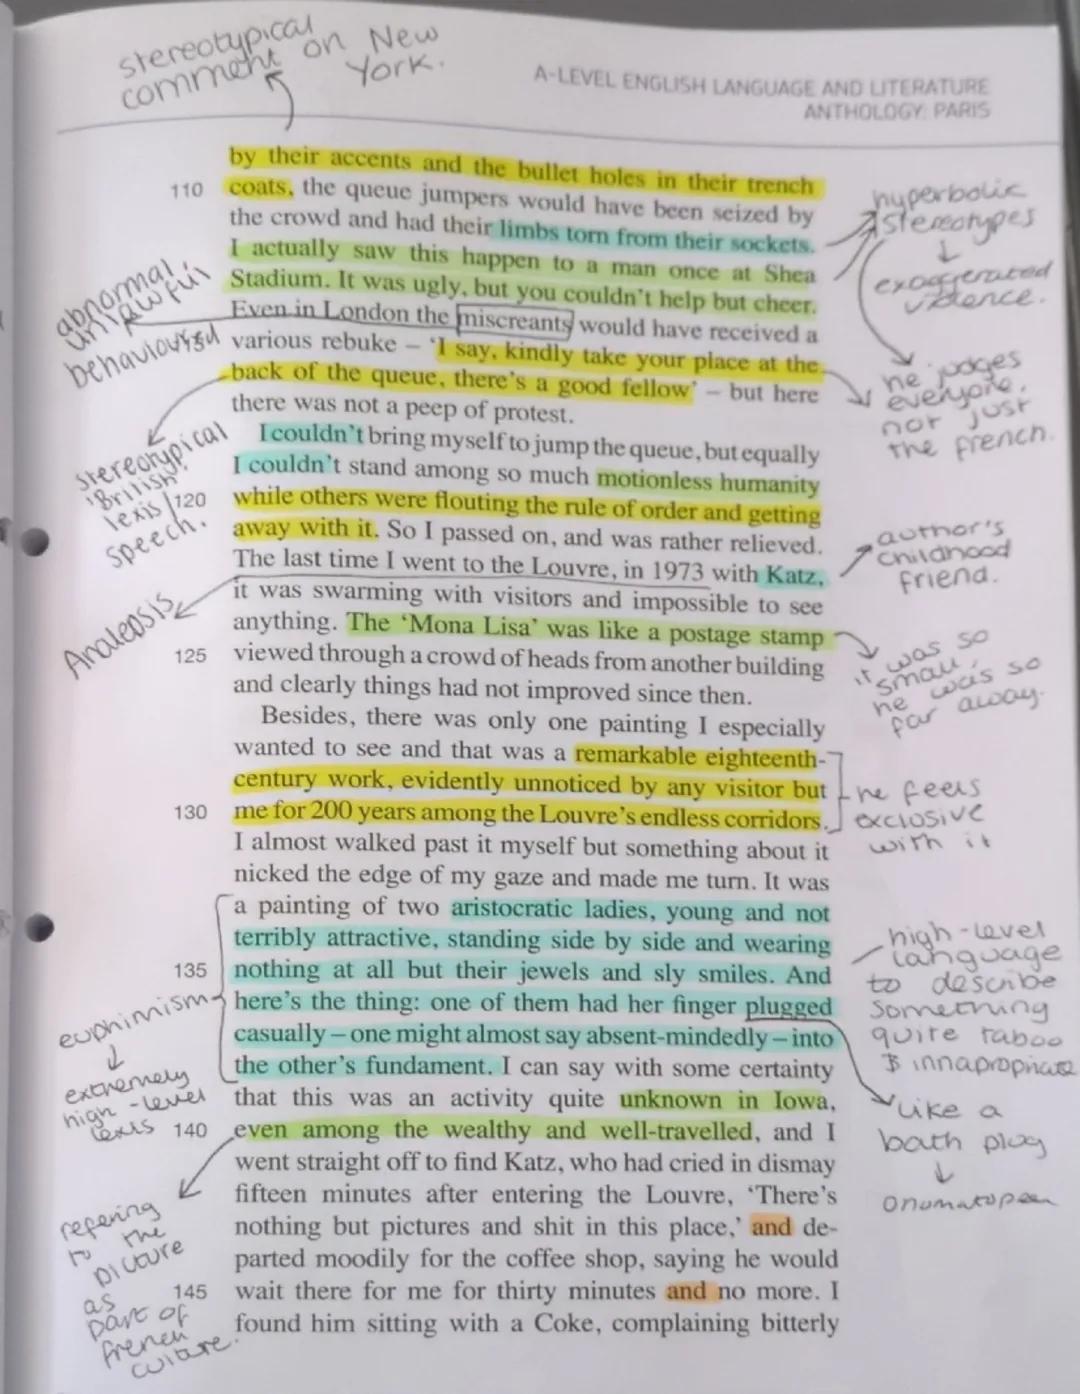 stereotypical
comment on New
York.
A-LEVEL ENGLISH LANGUAGE AND LITERATURE
ANTHOLOGY: PARIS
by their accents and the bullet holes in their trench
110 coats, the queue jumpers would have been seized by
the crowd and had their limbs torn from their sockets.
I actually saw this happen to a man once at Shea
Stadium. It was ugly, but you couldn't help but cheer.
Even in London the miscreants would have received a
various rebuke – 'I say, kindly take your place at the
back of the queue, there's a good fellow' – but here
there was not a peep of protest.
I couldn't bring myself to jump the queue, but equally
I couldn't stand among so much motionless humanity
120 while others were flouting the rule of order and getting
away with it. So I passed on, and was rather relieved.
The last time I went to the Louvre, in 1973 with Katz,
it was swarming with visitors and impossible to see
anything. The 'Mona Lisa' was like a postage stamp
125 viewed through a crowd of heads from another building
and clearly things had not improved since then.
Besides, there was only one painting I especially
wanted to see and that was a remarkable eighteenth-
century work, evidently unnoticed by any visitor but
130 me for 200 years among the Louvre's endless corridors.
I almost walked past it myself but something about it
nicked the edge of my gaze and made me turn. It was
a painting of two aristocratic ladies, young and not
terribly attractive, standing side by side and wearing
135 nothing at all but their jewels and sly smiles. And
here's the thing: one of them had her finger plugged
casually – one might almost say absent-mindedly – into
the other's fundament. I can say with some certainty
that this was an activity quite unknown in Iowa,
140 even among the wealthy and well-travelled, and I
went straight off to find Katz, who had cried in dismay
fifteen minutes after entering the Louvre, 'There's
nothing but pictures and shit in this place,' and de-
parted moodily for the coffee shop, saying he would
145 wait there for me for thirty minutes and no more. I
found him sitting with a Coke, complaining bitterly
abnormal,
unlawful
behaviour
stereotypical
'British'
lexis /
speech.
Analepsis
euphimism
extremely
high-level
lexis
refering
to the
picture
as
part of
french
culture.
hyperbolic
stereotypes
exaggerated
violence.
he judges
everyone,
not just
the french.
author's
childhood
friend.
it was so
small,
he was so
far away.
he feels
exclusive
with it
high-level
language
to describe
something
quite taboo
& innapropriate
like a
bath plug
onomatopeen